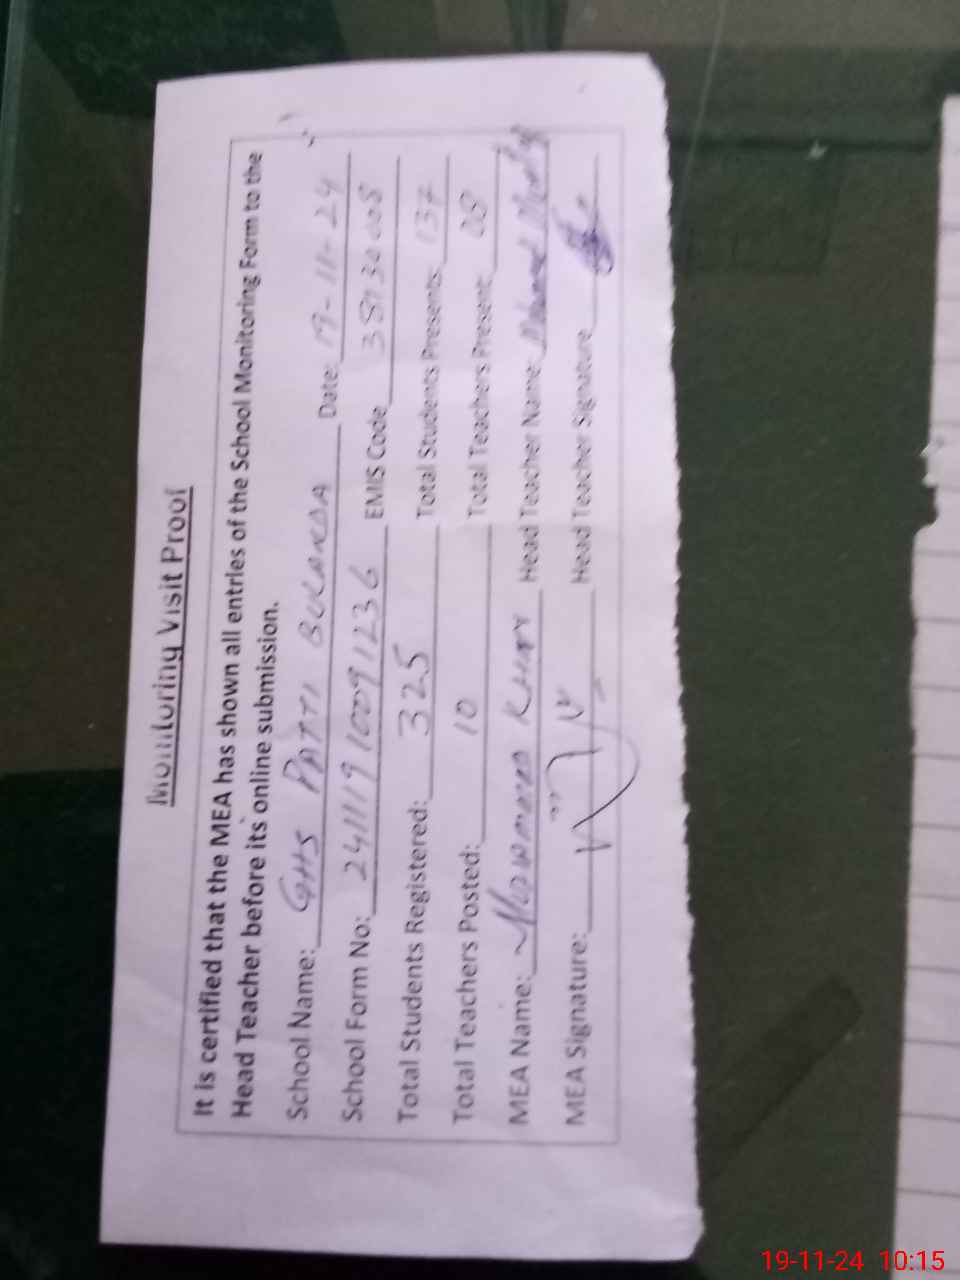 Monitoring Visit Proof
It is certified that the MEA has shown all entries of the School Monitoring Form to the
Head Teacher before its online submission.
School Name: GHS PATTI BULANDA Date: 19-11-24
School Form No: 241119 1009 1236 EMIS Code
Total Students Registered: 325 Total Students Presents: 137
Total Teachers Posted: 10 Total Teachers Present: 08
MEA Name: Khan Head Teacher Name:
MEA Signature: Head Teacher Signature
19-11-24 10:15